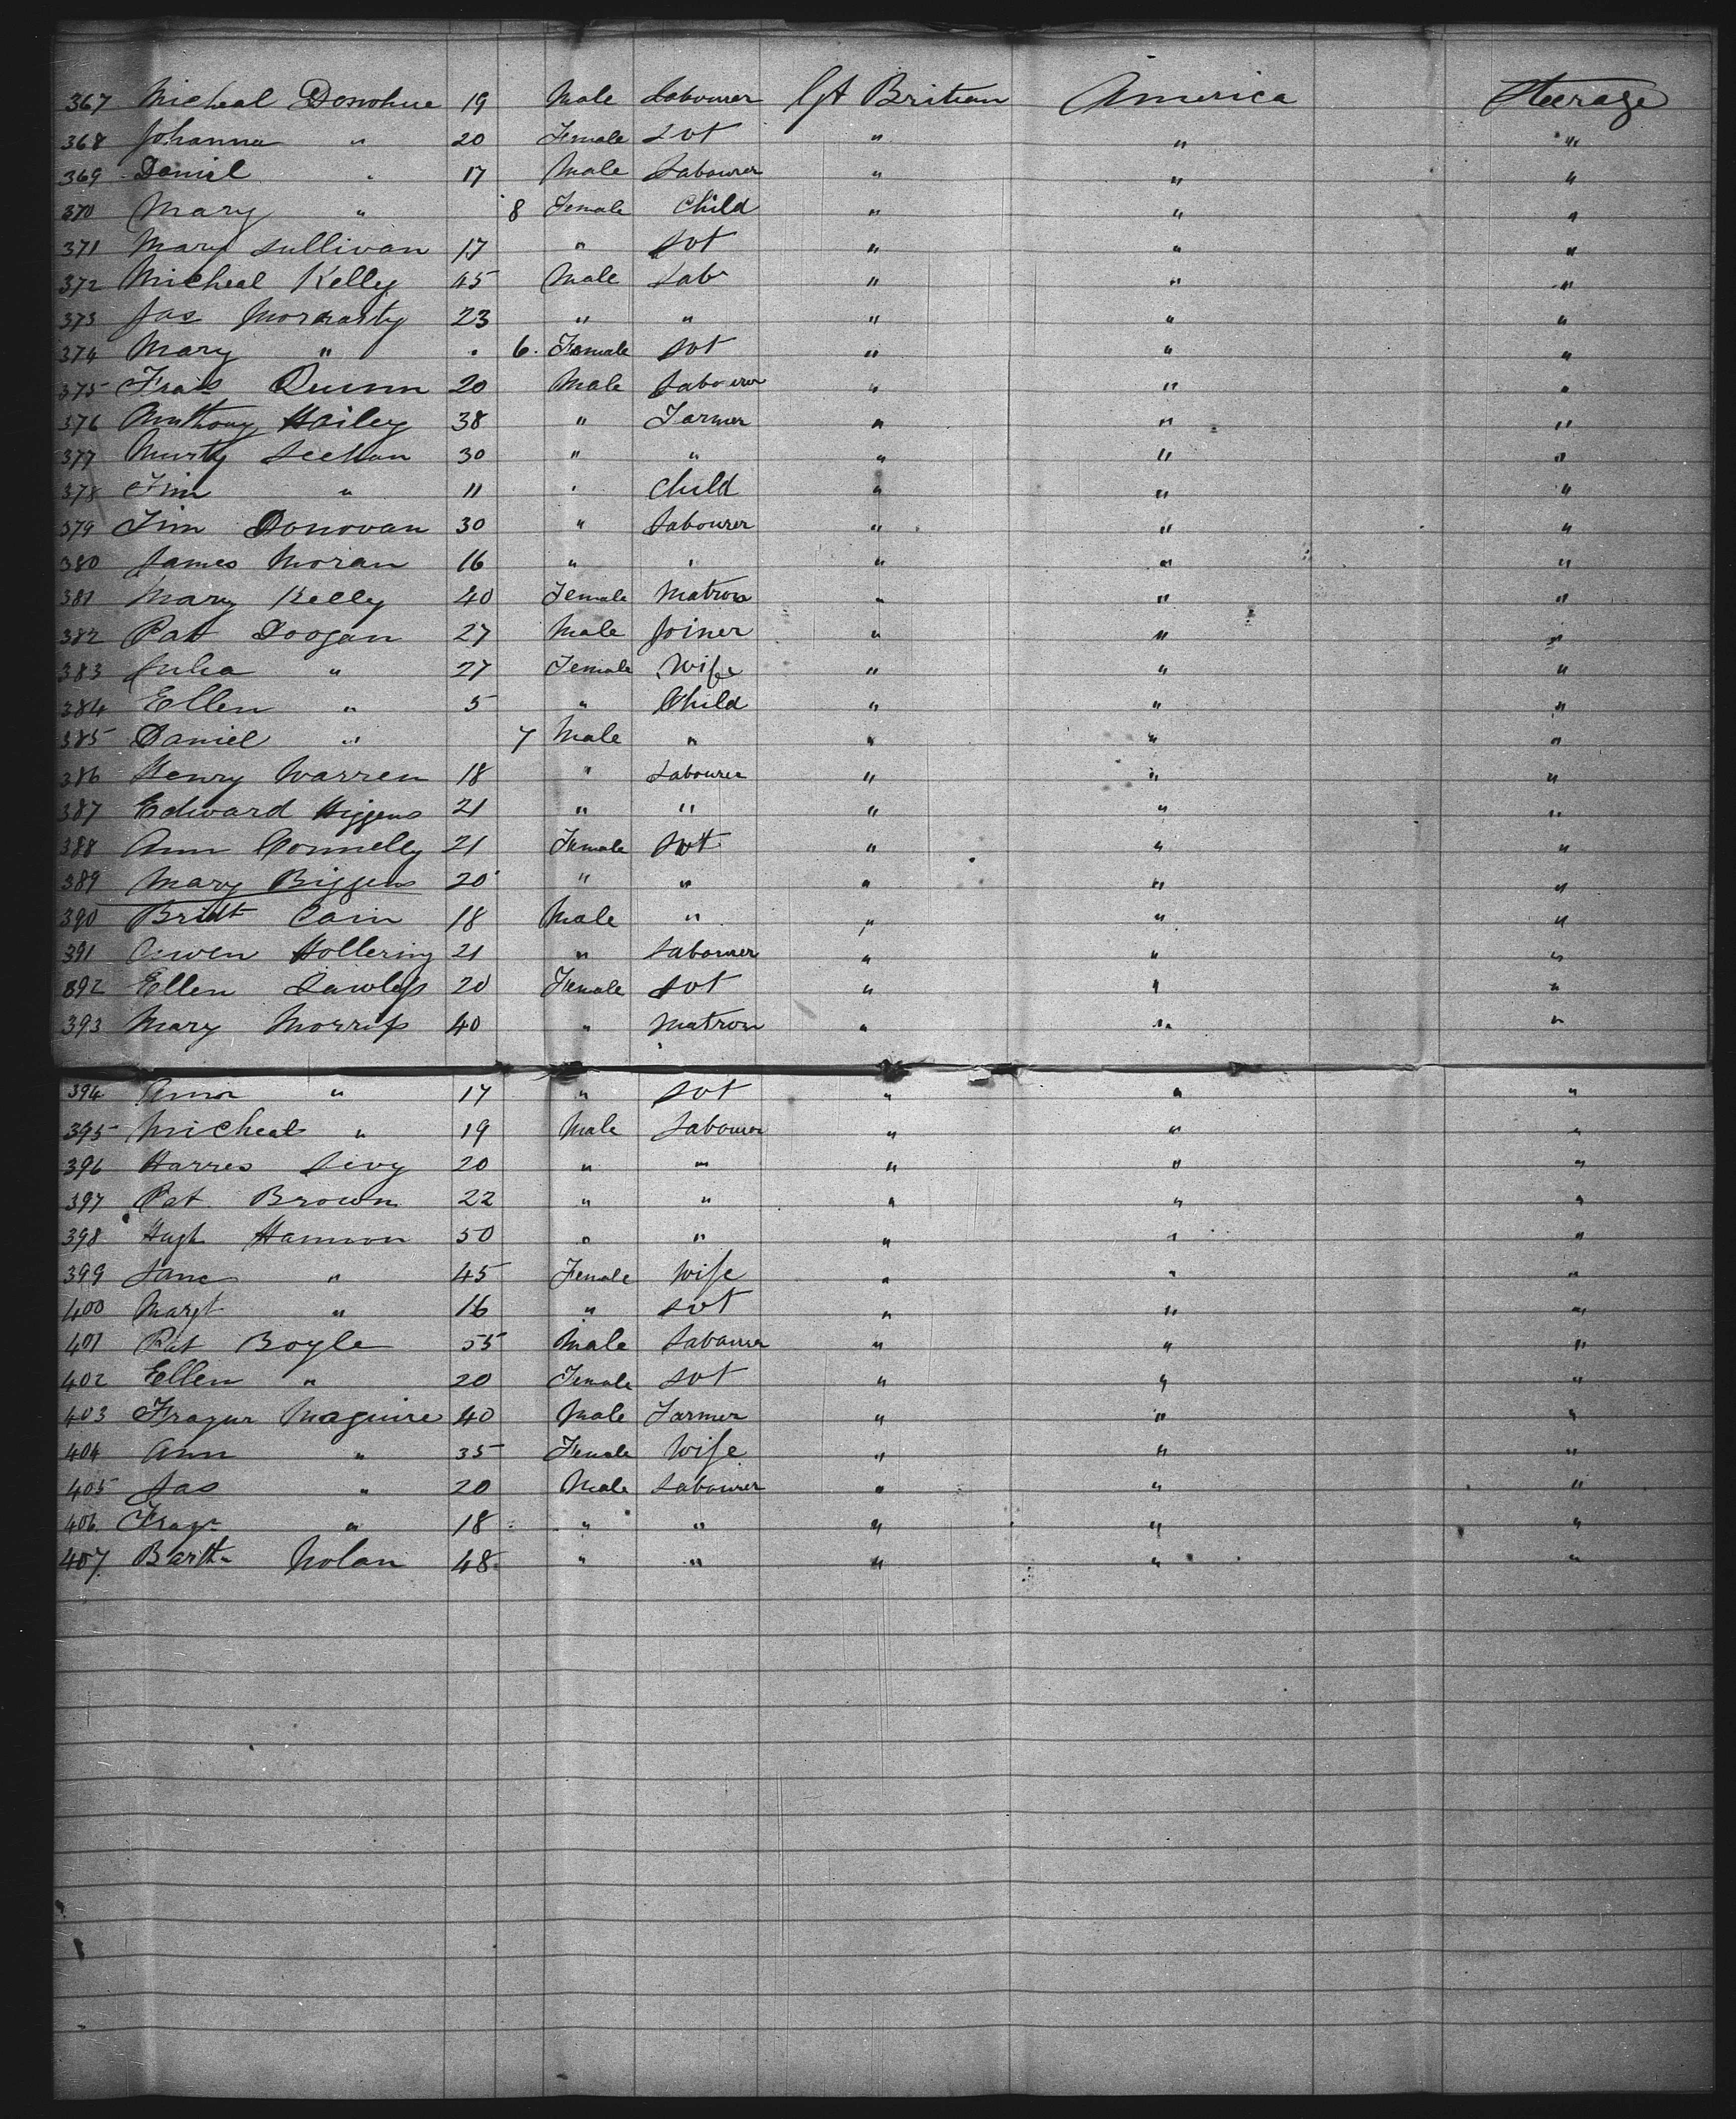 367 Micheal Donohue 19 Male Labourer Gt Britian America Steerage
368 Johanna " 20 Female Svt " " "
369 Daniel " 17 Male Labourer " " "
370 Mary " 8 Female Child " " "
371 Mary Sullivan 17 " Svt " " "
372 Micheal Kelley 45 Male Labr " " "
373 Jas Moriarty 23 " " " " "
374 Mary " " 6 Female Svt " " "
375 Fras Quinn 20 Male Labourer " " "
376 Anthony Hailey 38 " Farmer " " "
377 Murty Seehan 30 " " " " "
378 Tim " 11 " Child " " "
379 Tim Donovan 30 " Labourer " " "
380 James Moran 16 " " " " "
381 Mary Kelly 40 Female Matron " " "
382 Pat Doogan 27 Male Joiner " " "
383 Julia " 27 Female Wife " " "
384 Ellen " 5 " Child " " "
385 Daniel " 7 Male " " " "
386 Henry Warren 18 " Labourer " " "
387 Edward Higgens 21 " " " " "
388 Ann Connelly 21 Female Svt " " "
389 Mary Biggens 20 " " " " "
390 Bridt Cain 18 Male " " " "
391 Owen Hollering 21 " Labourer " " "
392 Ellen Lawless 20 Female Svt " " "
393 Mary Morriss 40 " Matron " " "
394 Ann " 17 " Svt " " "
395 Micheal " 19 Male Labourer " " "
396 Harres Levy 20 " " " " "
397 Pat Brown 22 " " " " "
398 Hugh Hannon 50 " " " " "
399 Jane " 45 Female Wife " " "
400 Margt " 16 " Svt " " "
401 Pat Boyle 55 Male Labourer " " "
402 Ellen " 20 Female Svt " " "
403 Maguire 40 Male Farmer " " "
404 Ann " 35 Female Wife " " "
405 Jas " 20 Male Labourer " " "
406 " 18 " " " " "
407 Barth Nolan 48 " " " " "